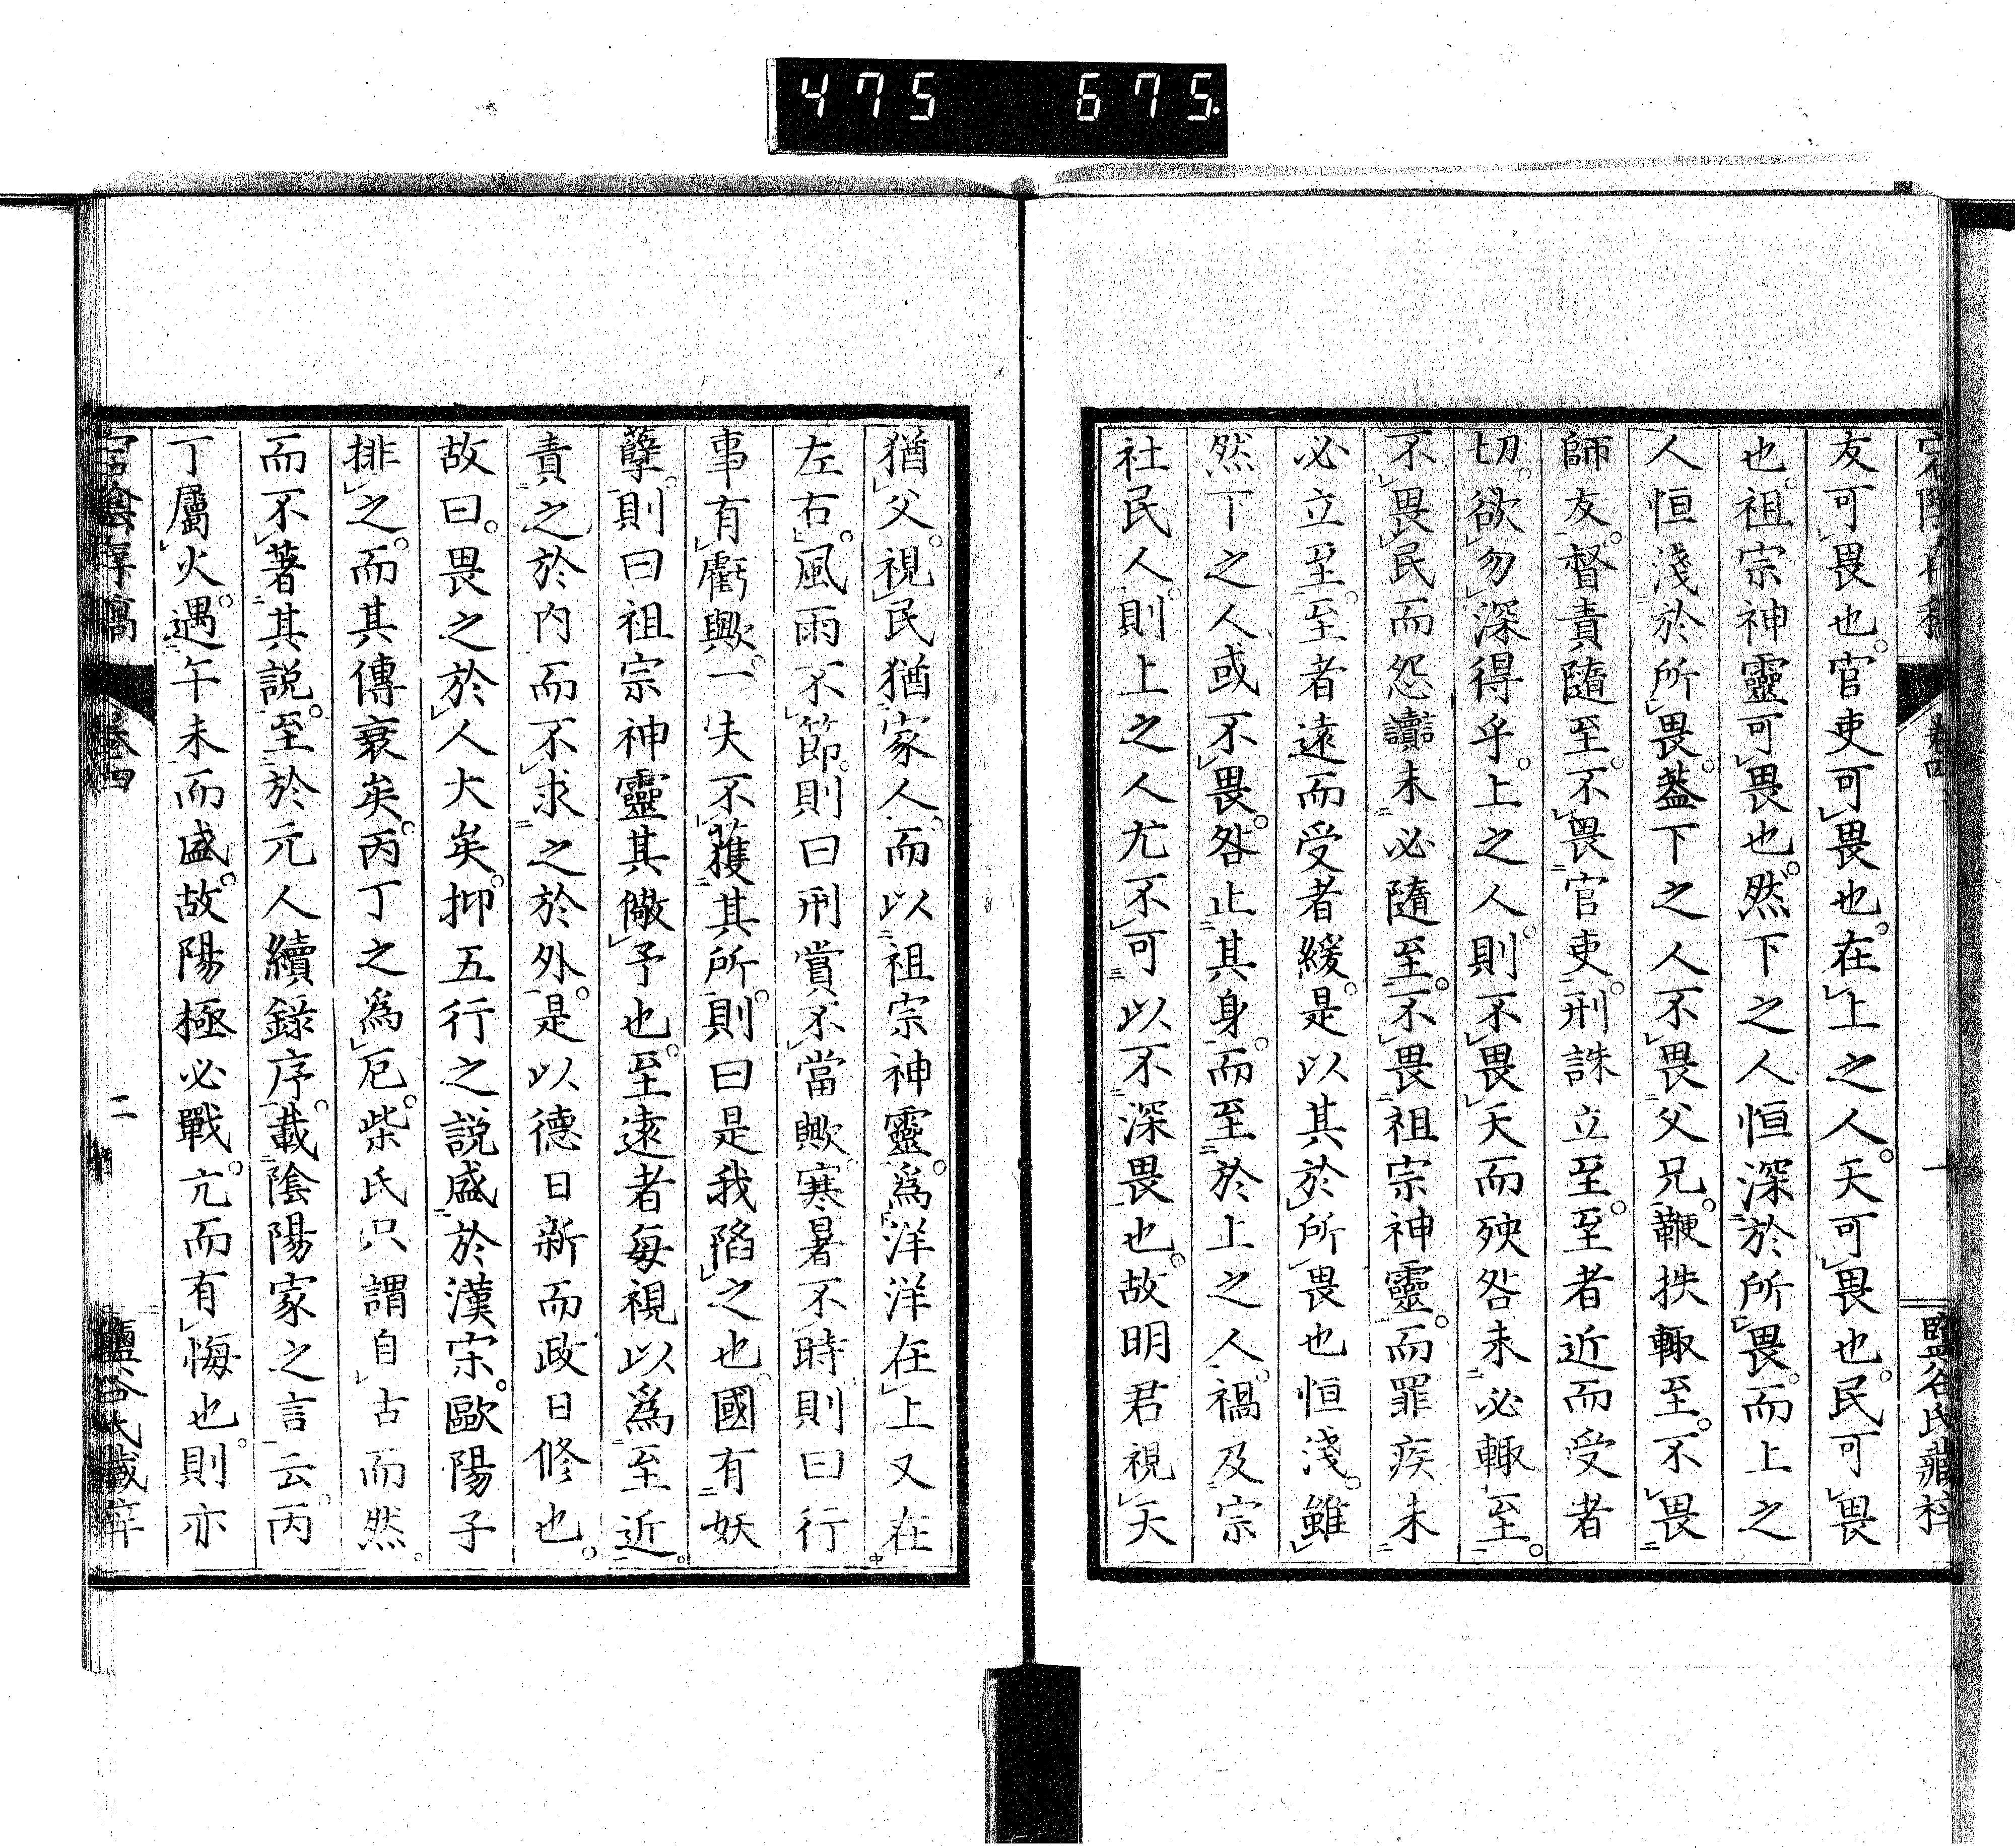 475 675
友可畏也。官吏可畏也。在上之人。天可畏也。民可畏
也。祖宗神靈可畏也。然下之人恒深於所畏。而上之
人恒淺於所畏。蓋下之人不畏父兄。鞭抶輙至。不畏
師友。督責隨至。不畏官吏。刑誅立至。至者近而受者
切。欲勿深得乎。上之人則不畏天而殃咎未必輙至。
不畏民而怨讟未必隨至。不畏祖宗神靈。而罪疾未
必立至。至者遠而受者緩。是以其於所畏也恒淺。雖
然下之人或不畏。咎止其身。而至於上之人。禍及宗
社民人。則上之人尤不可以不深畏也。故明君視天
猶父。視民猶家人。而以祖宗神靈。為洋洋在上又在
左右。風雨不節。則曰刑賞不當歟。寒暑不時則曰行
事有虧歟。一失不獲其所。則曰是我陷之也。國有妖
孽。則曰祖宗神靈其儆予也。至遠者每視以為至近。
責之於內而不求之於外。是以德日新而政日修也。
故曰。畏之於人大矣。抑五行之說盛於漢宋。歐陽子
排之。而其傳衰矣。丙丁之為厄。柴氏只謂自古而然。
而不著其說。至於元人續錄序。載陰陽家之言云。丙
丁屬火。遇午未而盛。故陽極必戰。亢而有悔也。則亦
宕陰存稿 卷四 二